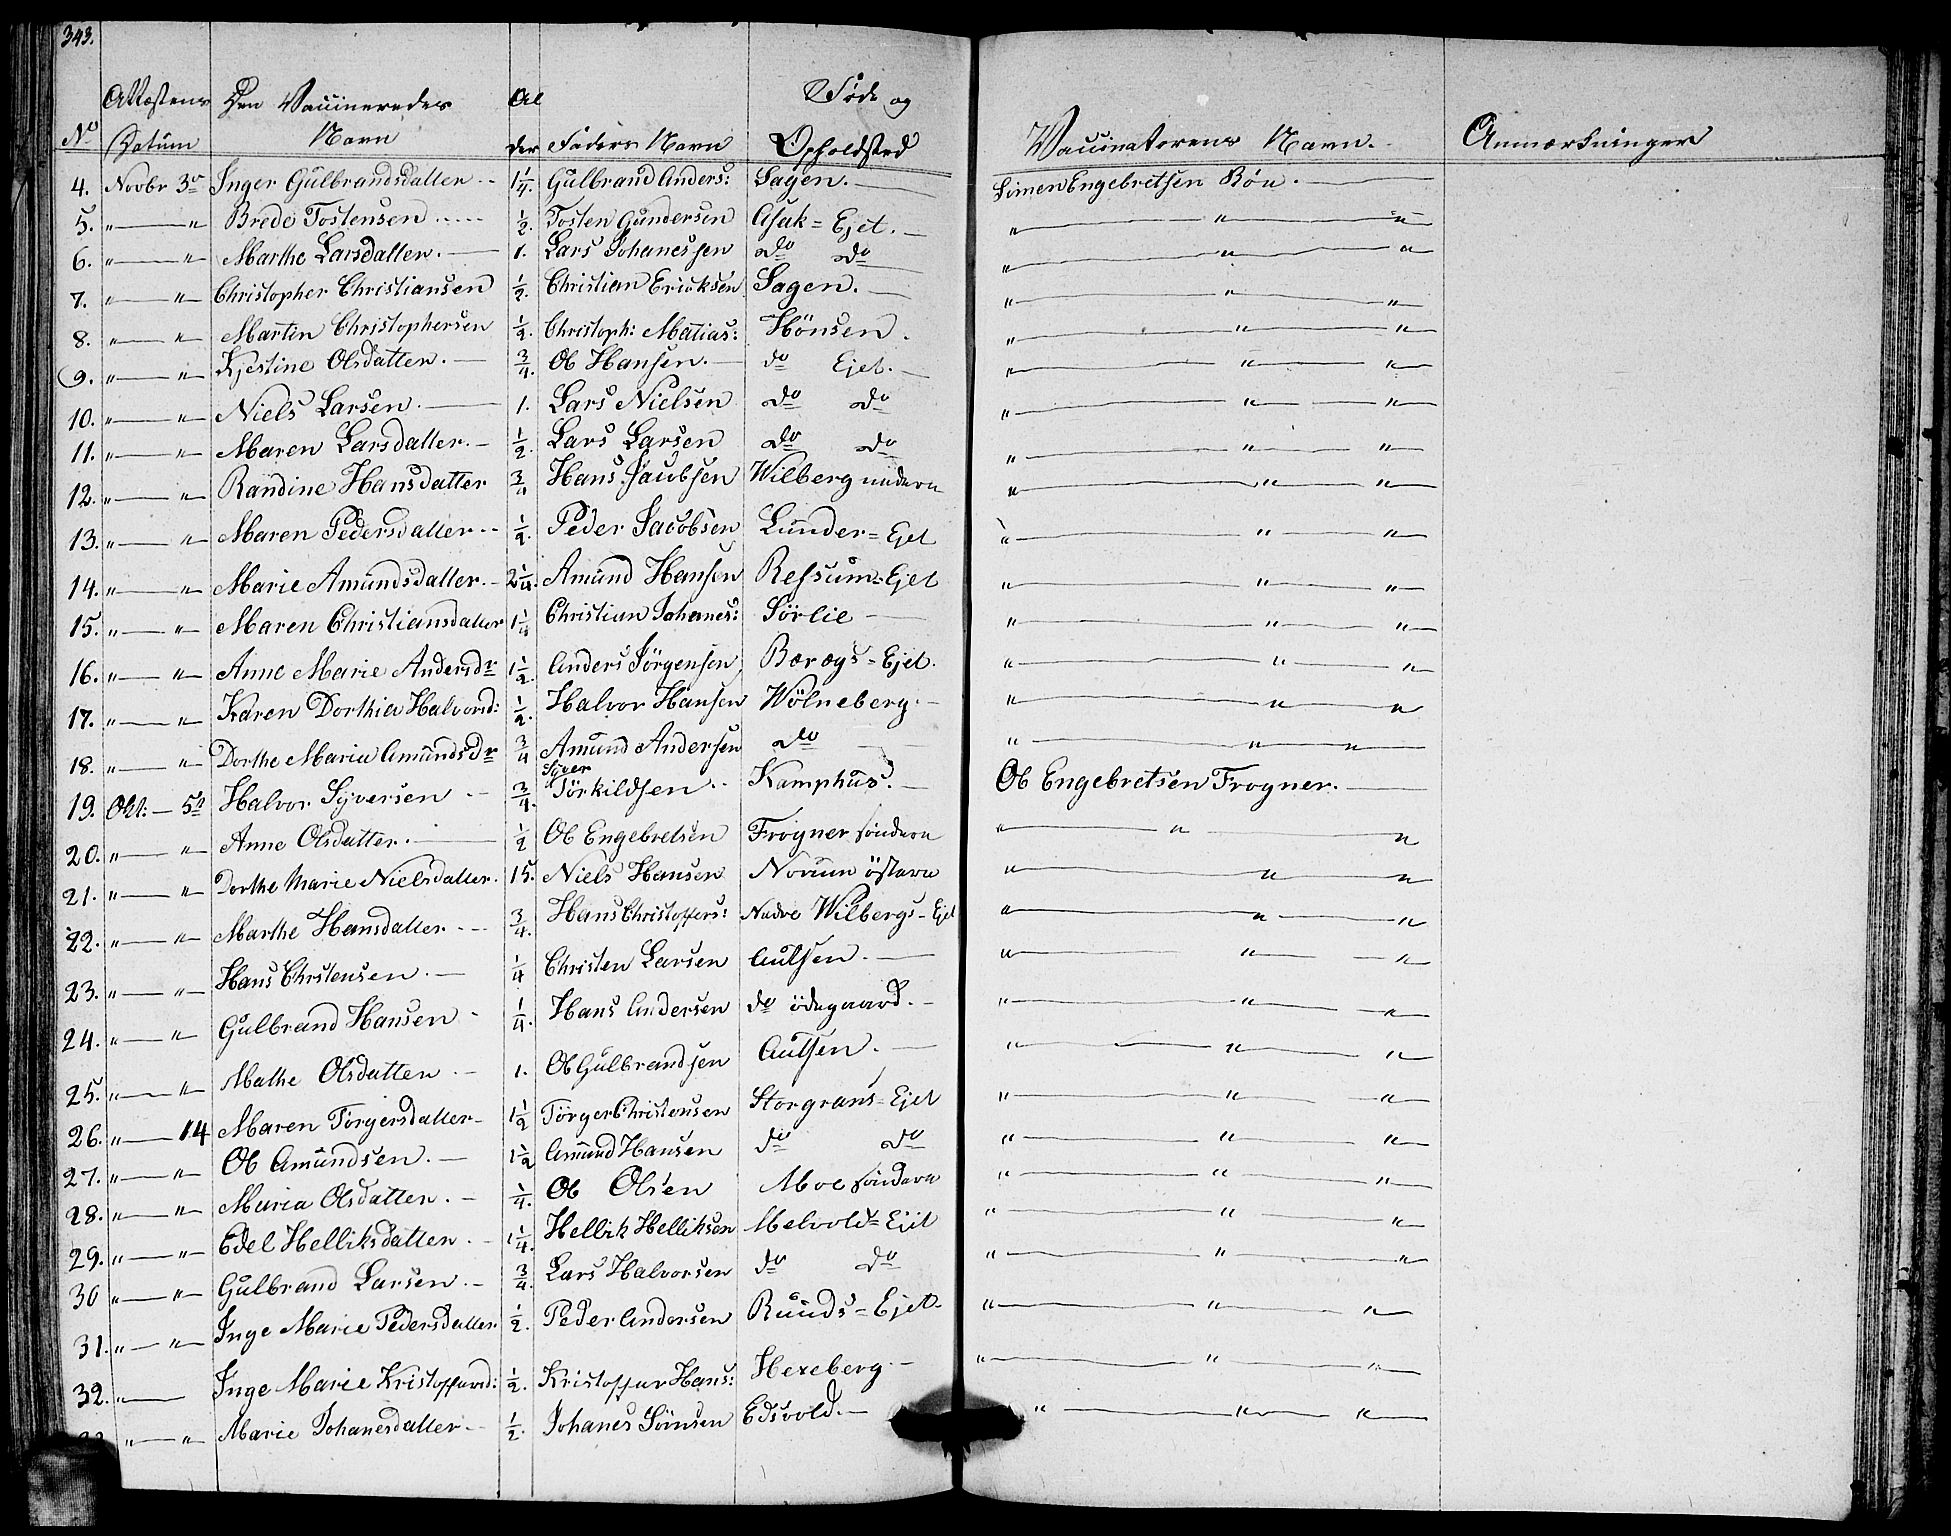 343.
No Attestens Datum Den Vaccineredes Navn Alder Faders Navn Føde og Opholdsted Vaccinatorens Navn. Anmærkninger
4. Novbr 3de Inger Gulbrandsdatter 1¼ Gulbrand Anders: Lagen. Simen Engebretsen Rön.
5. " " Brede Tostensen ½. Tosten Gundersen Asak = Ejet. " " "
6. " " Marthe Larsdatter. 1. Lars Johanessen do do " " "
7. " " Christopher Christiansen ½. Christian Ericksen Lagen. " " "
8. " " Martin Christophersen ½. Christoph: Matias: Hönsen. " " "
9. " " Kjestine Olsdatter. ¾. Ole Hansen. do Ejet. " " "
10. " " Niels Larsen. 1. Lars Nielsen do do " " "
11. " " Maren Larsdatter. ½. Lars Larsen do do " " "
12. " " Randine Hansdatter ¾ Hans Jacobsen Wilberg nedere " " "
13. " " Maren Pedersdatter ½. Peder Jacobsen Lunder = Ejet " " "
14. " " Marie Amundsdatter. 2¼. Amund Hansen Refsum = Ejet " " "
15. " " Maren Christiansdatter 1¼ Christian Johanes: Sörlie " " "
16. " " Anne Marie Andersdr 1½. Anders Jörgensen Berægs = Ejet. " " "
17. " " Karen Dorthia Halvorsd: ½. Halvor Hansen Wölneberg. " " "
18. " " Dorthe Maria Amundsdr ¾ Amund Andersen do " " "
19. Okt. 5te Halvor Syversen ¾. Syver Törkildsen Kamphus. Ole Engebretsen Frogner.
20. " " Anne Olsdatter. ½ Ole Engebretsen Frogner söndere " " "
21. " " Dorthe Marie Nielsdatter. 15. Niels Hansen Norum östere " " "
22. " " Marthe Hansdatter ¾. Hans Christoffers: Nedre Wilbergs = Ejet " " "
23. " " Hans Christensen. ¼ Christen Larsen Aulsen. " " "
24. " " Gulbrand Hansen ¼. Hans Andersen do ödegaard. " " "
25. " " Mathe Olsdatter 1. Ole Gulbrandsen Aulsen. " " "
26. " 14 Maren Törgersdatter 1½ Törger Christensen Storgrans = Ejet " " "
27. " " Ole Amundsen. 1½ Amund Hansen do do " " "
28. " " Maria Olsdatter. ¼. Ole Olsen Moe söndere " " "
29. " " Edel Helliksdatter. 1¼. Hellik Helliksen Melvold = Ejet " " "
30 " " Gulbrand Larsen. ¾. Lars Halvorsen do do " " "
31. " " Inge Marie Pedersdatter ½. Peder Andersen Ruuds = Ejet. " " "
32. " Inge Marie Kristoffersd: ½. Kristoffer Hans: Hexeberg. " " "
" " Marie Johanesdatter ½. Johanes Simsen Edsvold. " " "